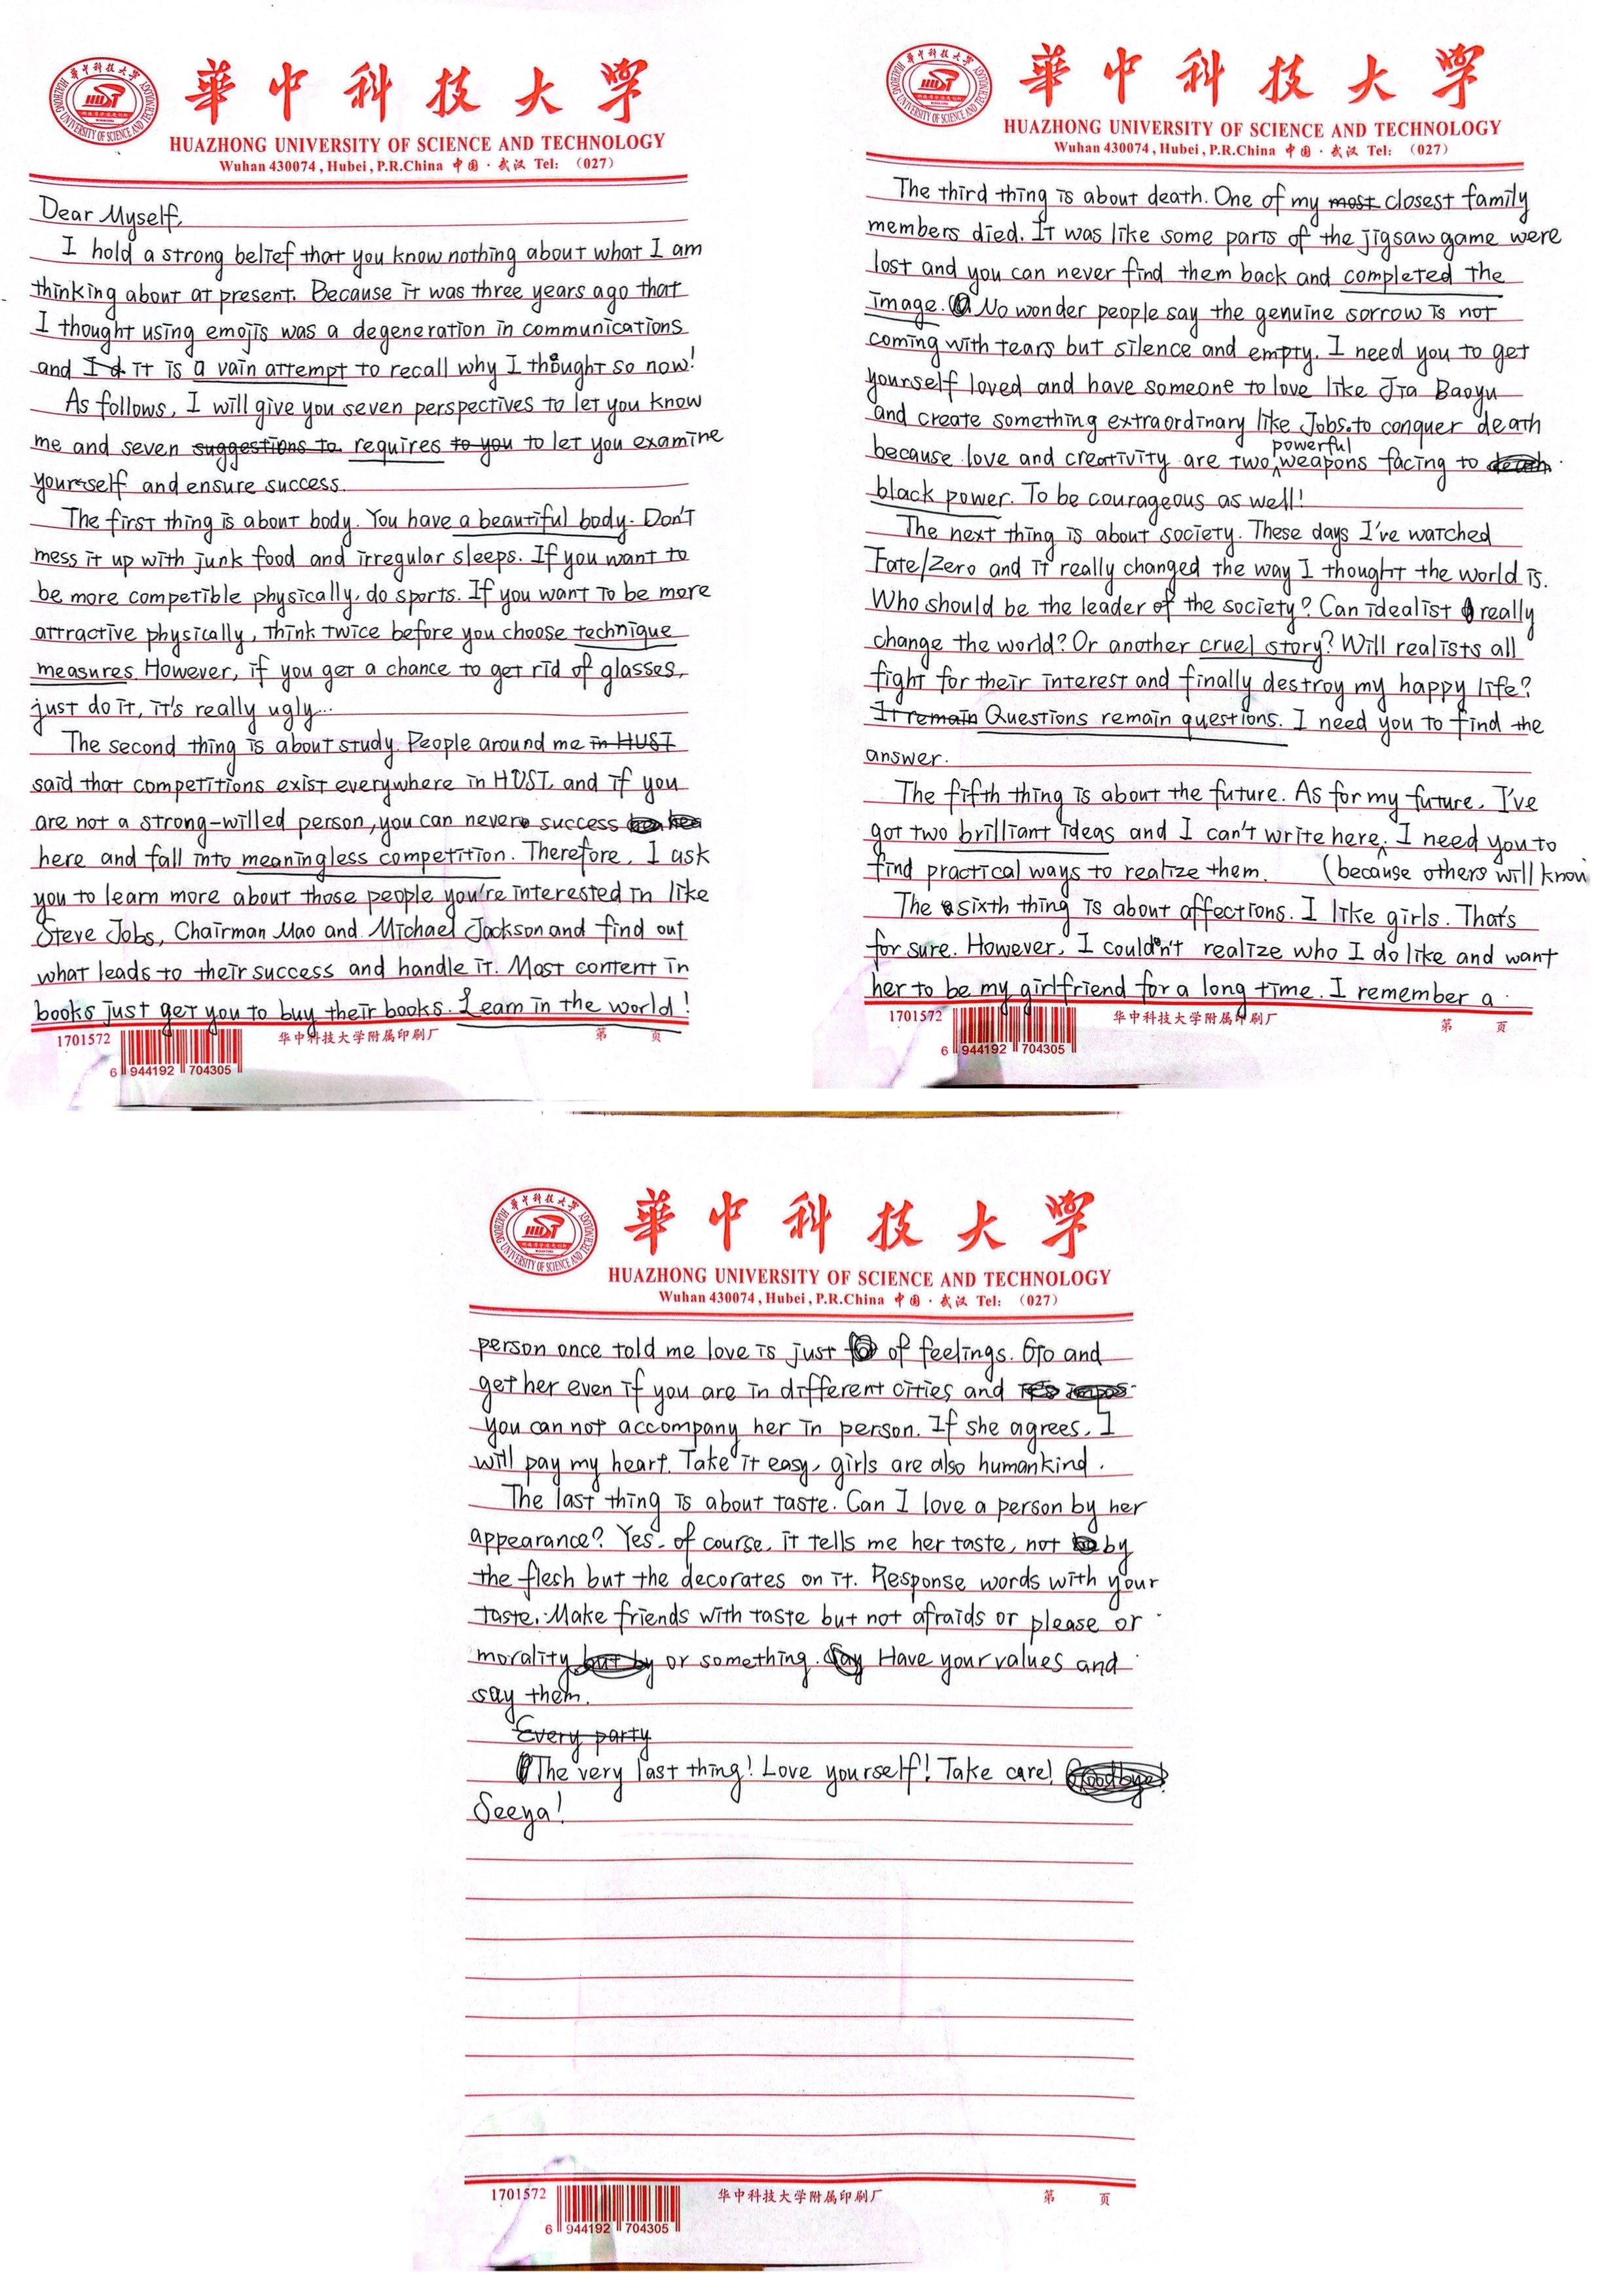 華中科技大学
HUAZHONG UNIVERSITY OF SCIENCE AND TECHNOLOGY
Wuhan 430074, Hubei, P.R.China 中国·武汉 Tel: (027)
Dear Myself,
I hold a strong belief that you know nothing about what I am
thinking about at present. Because it was three years ago that
I thought using emojis was a degeneration in communications
and I d it is a vain attempt to recall why I thought so now!
As follows, I will give you seven perspectives to let you know
me and seven suggestions to requires to you to let you examine
yourself and ensure success.
The first thing is about body. You have a beautiful body. Don't
mess it up with junk food and irregular sleeps. If you want to
be more competible physically, do sports. If you want to be more
attractive physically, think twice before you choose technique
measures. However, if you get a chance to get rid of glasses,
just do it, it's really ugly...
The second thing is about study. People around me in HUST
said that competitions exist everywhere in HUST, and if you
are not a strong-willed person, you can never success
here and fall into meaningless competition. Therefore, I ask
you to learn more about those people you're interested in like
Steve Jobs, Chairman Mao and Michael Jackson and find out
what leads to their success and handle it. Most content in
books just get you to buy their books. Learn in the world!
1701572 华中科技大学附属印刷厂 第 页
6 944192 704305
華中科技大学
HUAZHONG UNIVERSITY OF SCIENCE AND TECHNOLOGY
Wuhan 430074, Hubei, P.R.China 中国·武汉 Tel: (027)
The third thing is about death. One of my most closest family
members died. It was like some parts of the jigsaw game were
lost and you can never find them back and completed the
image. No wonder people say the genuine sorrow is not
coming with tears but silence and empty. I need you to get
yourself loved and have someone to love like Jia Baoyu
and create something extraordinary like Jobs.to conquer death
because love and creativity are two powerful weapons facing to death
black power. To be courageous as well!
The next thing is about society. These days I've watched
Fate/Zero and it really changed the way I thought the world is.
Who should be the leader of the society? Can idealist really
change the world? Or another cruel story? Will realists all
fight for their interest and finally destroy my happy life?
It remain Questions remain questions. I need you to find the
answer.
The fifth thing is about the future. As for my future, I've
got two brilliant ideas and I can't write here. I need you to
find practical ways to realize them. (because others will know
The sixth thing is about affections. I like girls. That's
for sure. However, I couldn't realize who I do like and want
her to be my girlfriend for a long time. I remember a
1701572 华中科技大学附属印刷厂 第 页
6 944192 704305
華中科技大学
HUAZHONG UNIVERSITY OF SCIENCE AND TECHNOLOGY
Wuhan 430074, Hubei, P.R.China 中国·武汉 Tel: (027)
person once told me love is just of feelings. Go and
get her even if you are in different cities and
you can not accompany her in person. If she agrees, I
will pay my heart. Take it easy, girls are also humankind.
The last thing is about taste. Can I love a person by her
appearance? Yes, of course, it tells me her taste, not by
the flesh but the decorates on it. Response words with your
taste. Make friends with taste but not afraids or please or
morality but by or something. Say Have your values and
say them.
Every party
The very last thing! Love yourself! Take care! Goodbye!
Seeya!
1701572 华中科技大学附属印刷厂 第 页
6 944192 704305